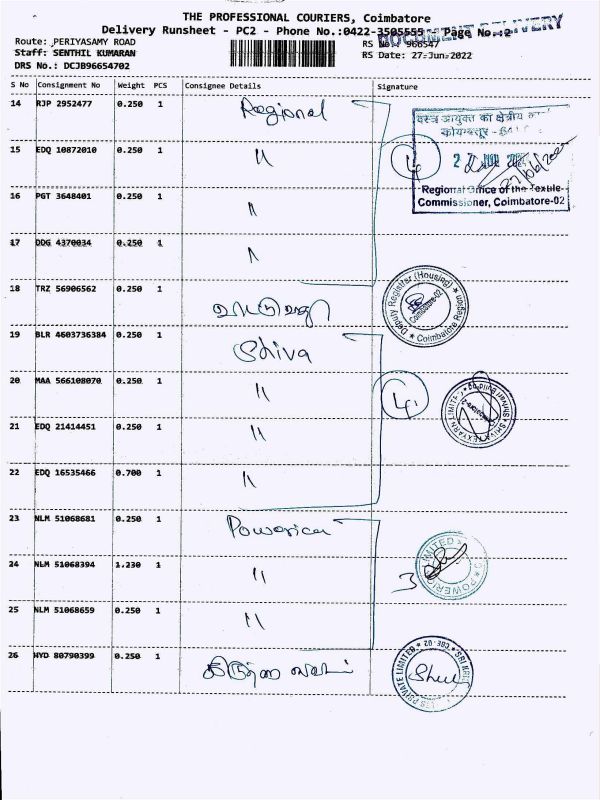 THE PROFESSIONAL COURIERS, Coimbatore
Delivery Runsheet - PC2 - Phone No.:0422-3505555 Page No.:2
DOCUMENT DELIVERY
Route: PERIYASAMY ROAD
RS No: 966547
Staff: SENTHIL KUMARAN
RS Date: 27-Jun-2022
DRS No.: DCJB96654702
S No Consignment No Weight PCS Consignee Details Signature
14 RJP 2952477 0.250 1 Regional
15 EDQ 10872010 0.250 1 "
4
Regional Office of the Textile
Commissioner, Coimbatore-02
16 PGT 3648401 0.250 1 "
17 DDG 4370034 0.250 1 "
18 TRZ 56906562 0.250 1
Deputy Registrar (Housing) * Coimbatore Region *
Coimbatore-02
19 BLR 4603736384 0.250 1 Shiva
20 MAA 566108070 0.250 1 "
4
21 EDQ 21414451 0.250 1 "
22 EDQ 16535466 0.700 1 "
23 NLM 51068681 0.250 1 Powerica
24 NLM 51068394 1.230 1 "
3
25 NLM 51068659 0.250 1 "
26 HYD 80790399 0.250 1